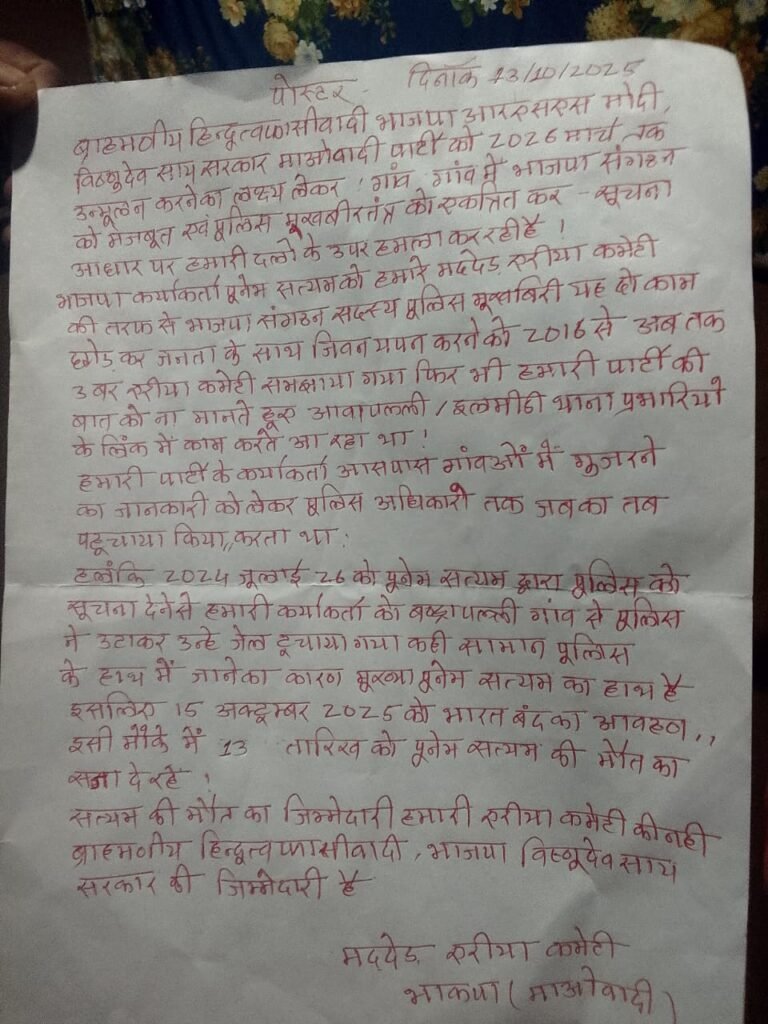 पोस्टर दिनाँक 13/10/2025
ब्राहमणीय हिन्दुत्वफासीवादी भाजपा आरएसएस मोदी,
विष्णुदेव साय सरकार माओवादी पार्टी को 2026 मार्च तक
उन्मूलन करनेका लक्ष्य लेकर ! गांव गांव में भाजपा संगठन
को मजबूत एवं पुलिस मूखबीरतंत्र को एकत्रित कर - सूचना
आधार पर हमारी दलो के उपर हमला कर रही है !
भाजपा कर्याकर्ता पूनेम सत्यमको हमारे मददेड़ एरीया कमेटी
की तरफ से भाजपा संगठन सदस्य पुलिस मूखबिरी यह दो काम
छोड़ कर जनता के साथ जिवन यपन करने को 2016 से अब तक
3 बर एरीया कमेटी समझाया गया फिर भी हमारी पार्टी की
बात को ना मानते हूए आवापल्ली / इलमीडी थाना प्रभारियो
के लिंक में काम करते आ रहा था !
हमारी पार्टी के कर्याकर्ता आसपास गांवओं में गुजरने
का जानकारी को लेकर पुलिस अधिकारी तक जबका तब
पहूचाया किया,,करता था !
हलंकि 2024 जूलाई 26 को पूनेम सत्यम द्वारा पुलिस को
सूचना देनेसे हमारी कर्याकर्ता को गांव से पुलिस
ने उटाकर उन्हे जेल टूचाया गया कही सामान पुलिस
के हाथ में जानेका कारण मूख्या पूनेम सत्यम का हाथ है
इसलिए 15 अक्टूम्बर 2025 को भारत बंद का आवहन,,
इसी मौके में 13 तारिख को पूनेम सत्यम की मौत का
सजा दे रहे !
सत्यम की मौत का जिम्मेदारी हमारी एरीया कमेटी की नही
ब्राहमणीय हिन्दुत्वफासीवादी, भाजपा विष्णुदेव साय
सरकार की जिम्मेदारी है
मददेड़ एरीया कमेटी
भाकपा (माओवादी)